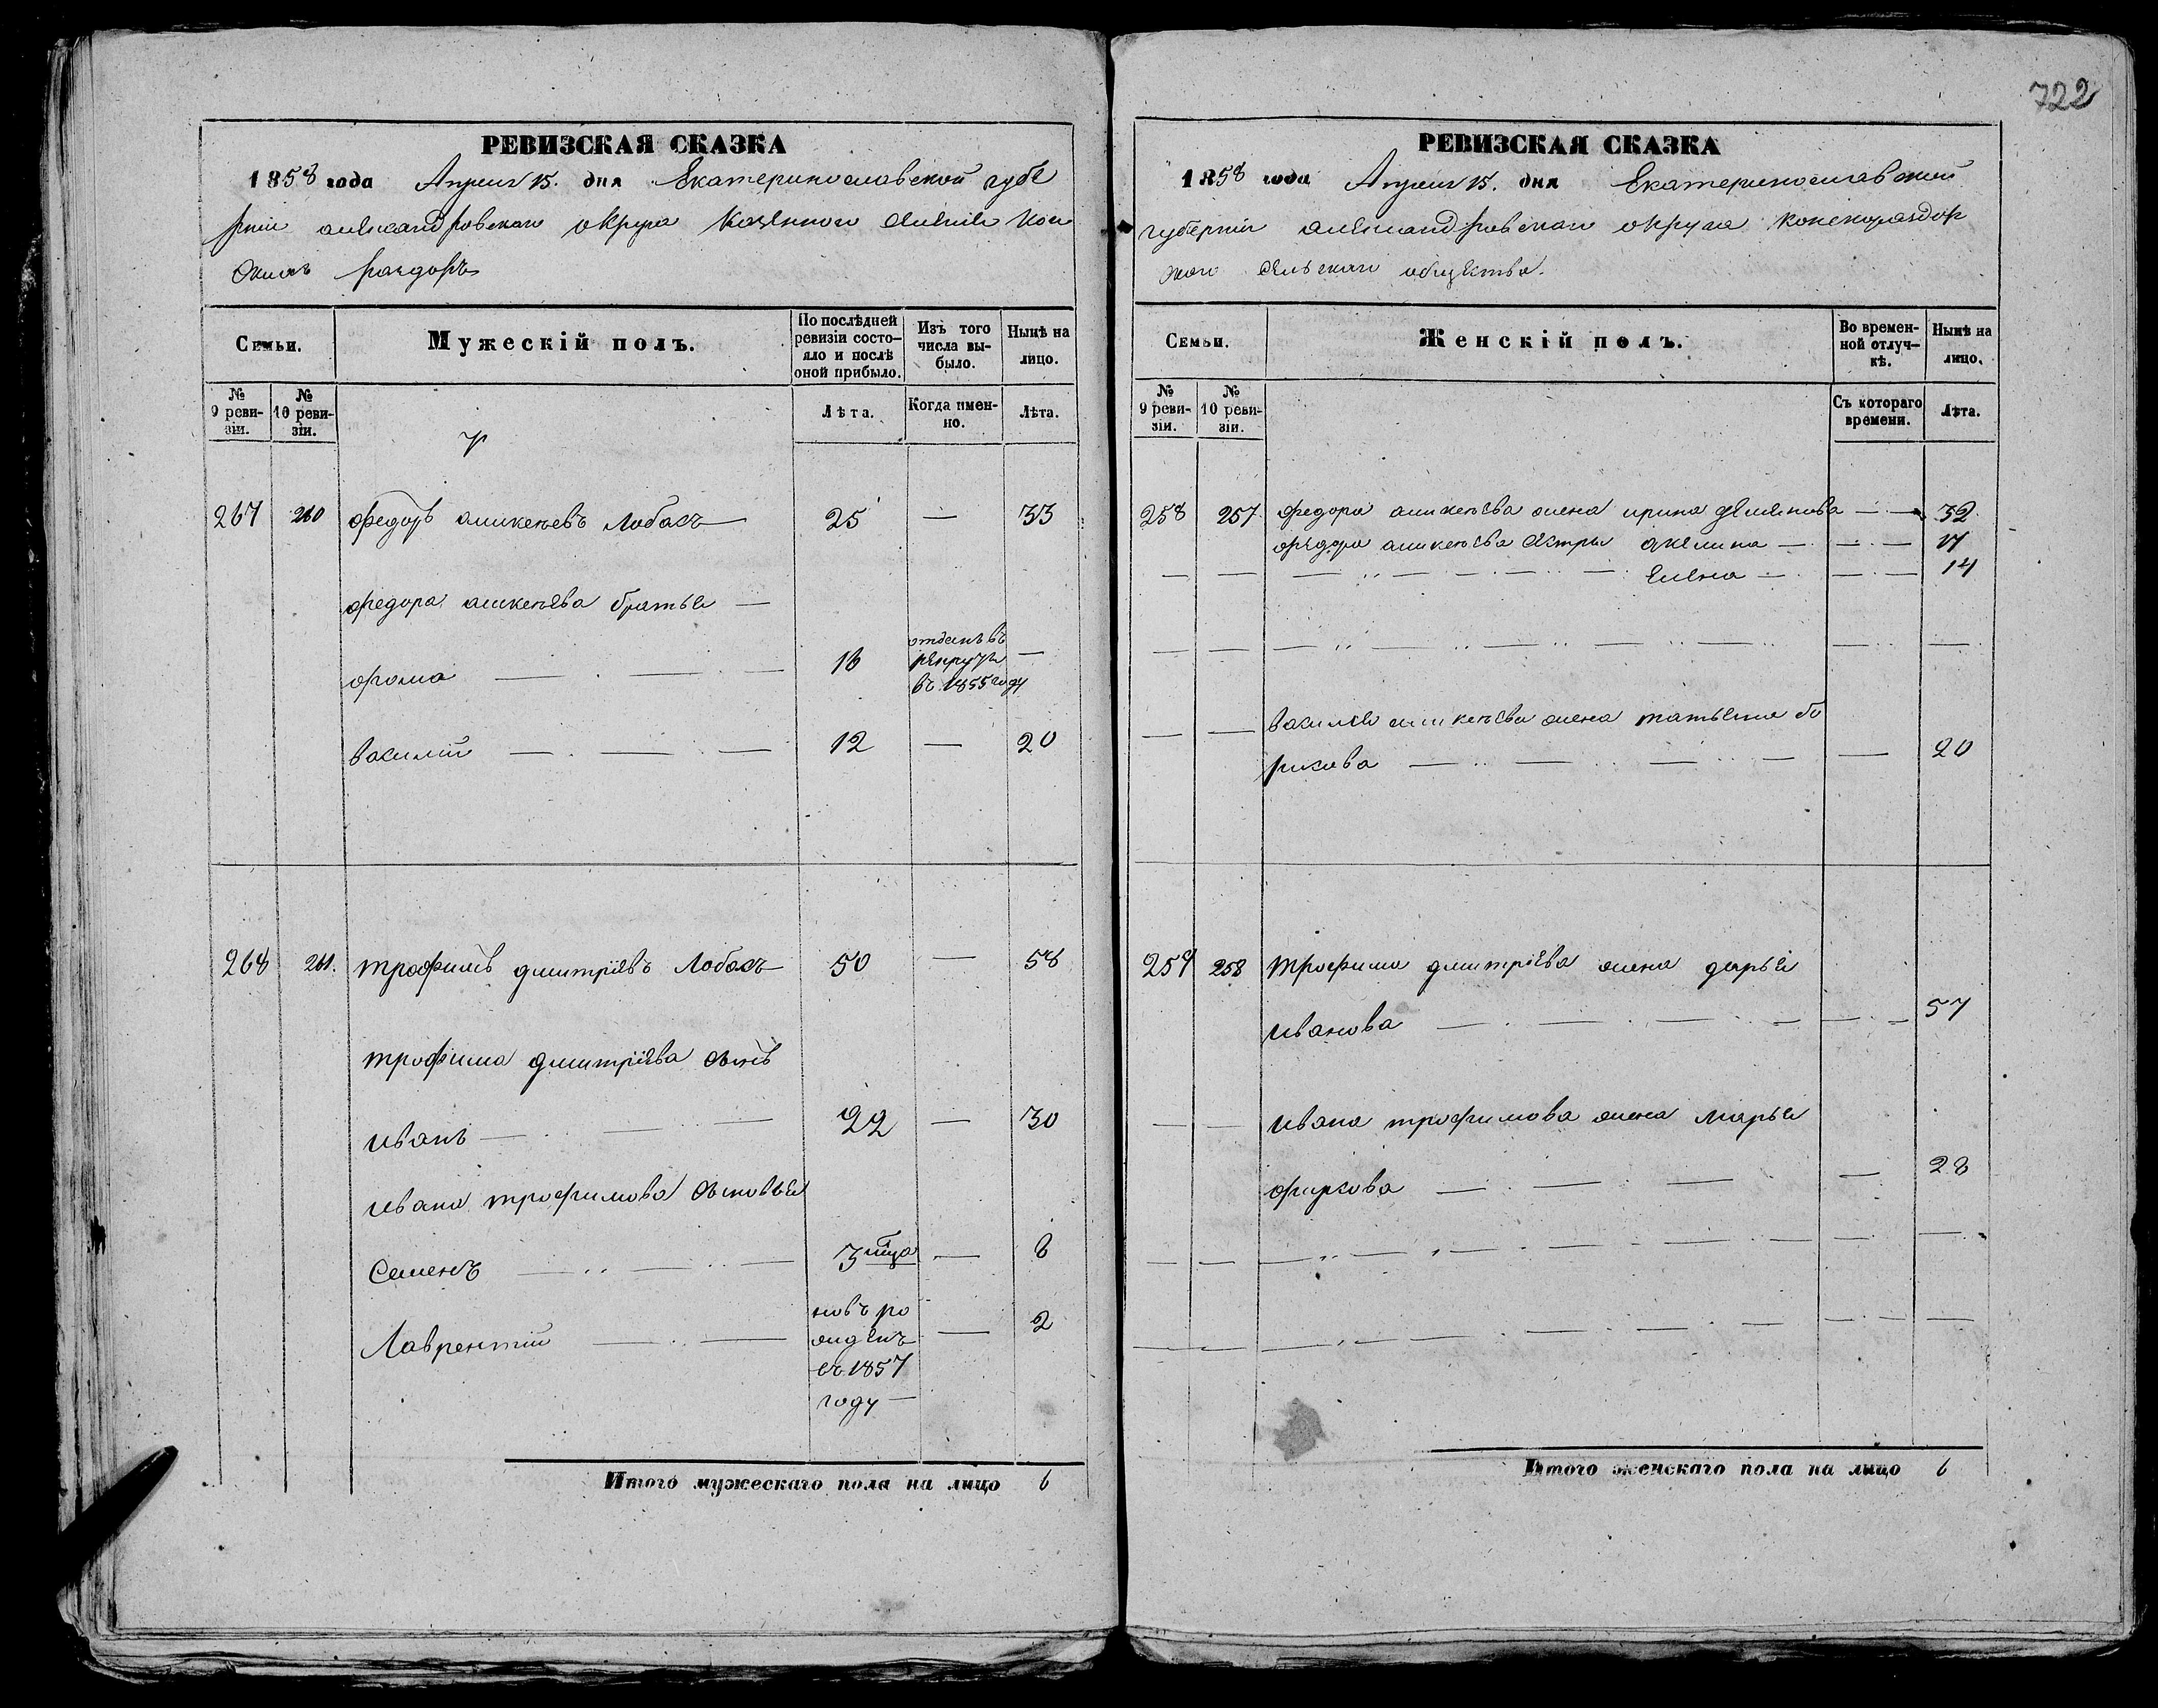 722
РЕВИЗСКАЯ СКАЗКА
1858 года Апреля 15. дня Екатеринославской губе
рнии александровскаго округа казенного селенія кон
скихъ раздоръ
Семьи.
Мужескій полъ.
По послѣдней ревизіи состояло и послѣ оной прибыло.
Изъ того числа выбыло.
Нынѣ на лицо.
№ 9 ревизіи.
№ 10 ревизіи.
Лѣта.
Когда именно.
Лѣта.
267 260 федоръ аникеевъ Лобасъ — 25 — 33
федора аникеева братья —
фома — 16 отданъ въ
рекруты —
въ 1855 году
василій — 12 — 20
268 261. трофимъ дмитріевъ Лобасъ 50 — 58
трофима дмитріева сынъ
иванъ — 22 — 30
ивана трофимова сыновья
Семенъ — 3 мца — 8
Лаврентій — новъ ро
жденъ — 2
въ 1857
году —
Итого мужескаго пола на лицо 6
РЕВИЗСКАЯ СКАЗКА
1858 года Апреля 15. дня Екатеринославской
губерніи александровскаго округа конскораздор
скаго сельскаго общества.
Семьи.
Женскій полъ.
Во временной отлучкѣ.
Нынѣ на лицо.
№ 9 ревизіи.
№ 10 ревизіи.
Съ котораго времени.
Лѣта.
258 257 федора аникеева жена ирина — 32
федора аникеева сестры акелина — 17
— Елена — 14
василія аникеева жена татьяна бо
рисова — 20
259 258 трофима дмитріева жена дарья
иванова — 57
ивана трофимова жена марья
фиркова — 28
Итого женскаго пола на лицо 6